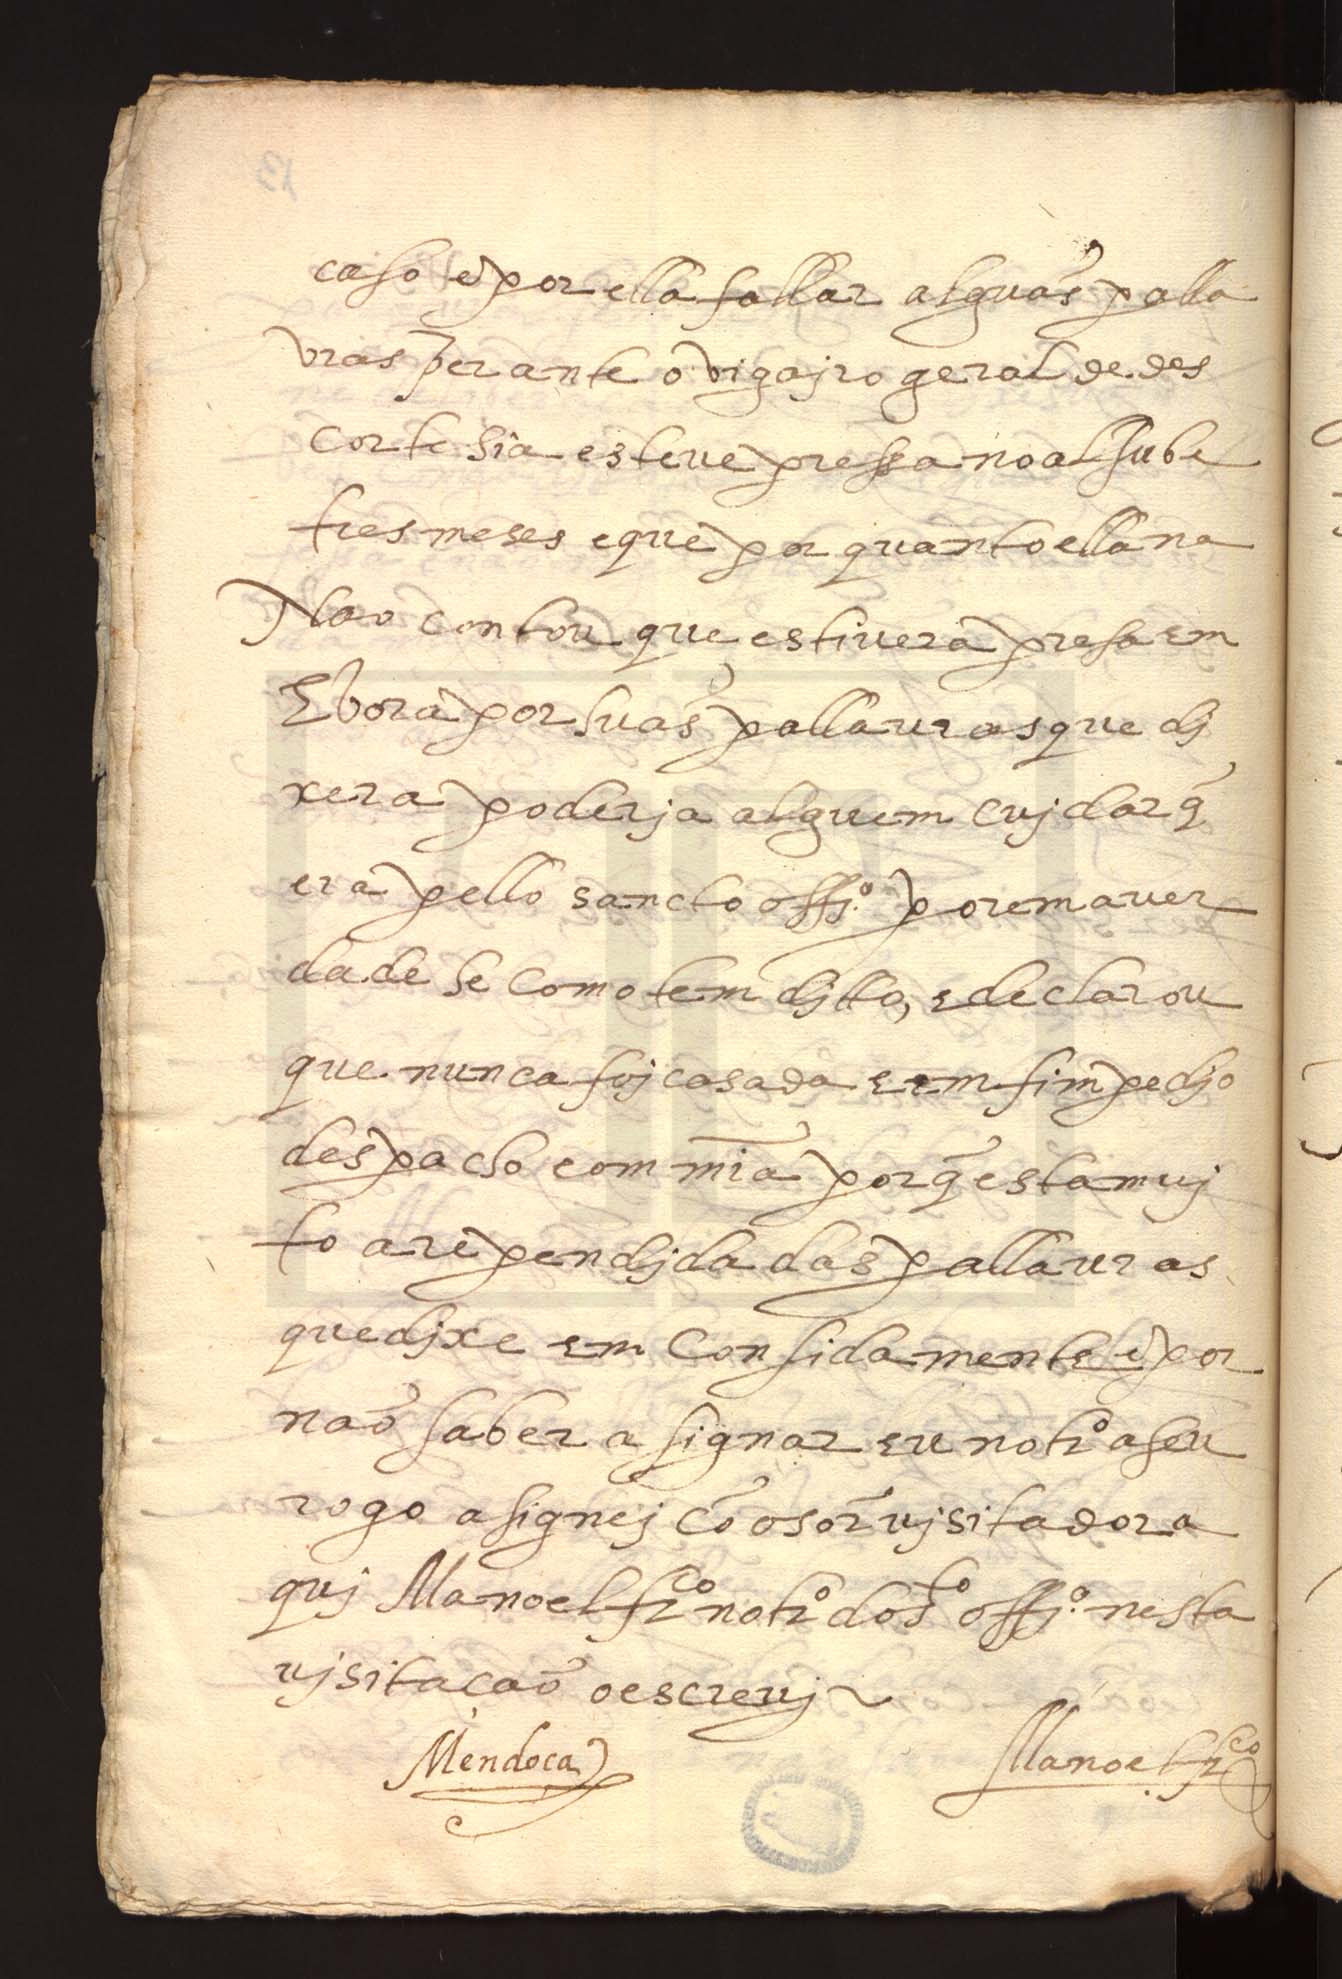 caso e por ella fallar alguãs palla
vras perante o vigajro geral de des
cortesia esteve pressa no alsube
tres meses e que por quanto ella na
Nao contou que estivera presa em
Evora por suas pallavras que dj
xera poderja alguem cujdar q̃
era pello sancto offj.º porem a ver
dade he como tem djtto, e declarou
que nunca foj casada e em fim pedjo
despacho com mĩa porq̃ esta muj
to arependjda das pallavras
que djxe em consideramente e por
naõ saber asignar eu notrº a seu
rogo asignej cõ o sõr vjsitador a
quj Manoel frcº notrº do stº offjº nesta
vjsitaçaõ o escrevj
Mendoça Manoel frcº
13